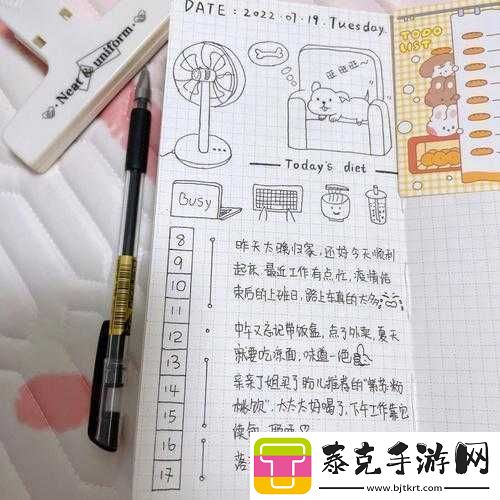 Neat & uniform
DATE : 2022 . 07 . 19 . Tuesday.
TODO
LIST
旺旺~
Today's diet
Busy
8
9
10
11
12
13
14
15
16
17
昨天太晚归家，还好今天顺利
起床，最近工作有点忙，疫情结
束后的上班日，路上车真的太多
中午又忘记带饭盒，点了外卖，夏天
就要吃凉面，味道一绝
亲亲丁姐买了
推荐的"紫苏粉
桃饮"，太太太好喝了，下午工作
落
泰克手游网
www.bjtkrt.com